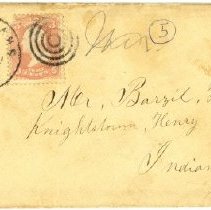 5
Mr. Barzil,
Knightstown, Henry
Indian